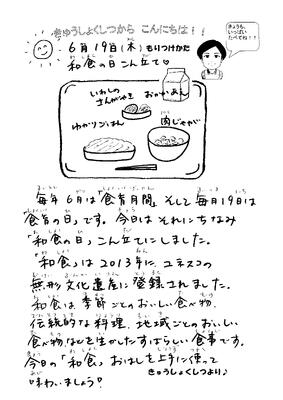 きゅうしょくしつから こんにちは！！
きょうも、
いっぱい
たべてね！！
6月19日(木) もりつけかた
和食の日こん立て♡
いわしの
さんがやき
おかかあえ
ゆかりごはん
肉じゃが
毎年6月は「食育月間」そして毎月19日は
「食育の日」です。今日はそれにちなみ
「和食の日」こん立てにしました。
「和食」は2013年に、ユネスコの
無形文化遺産に登録されました。
和食は、季節ごとのおいしい食べ物、
伝統的な料理、地域ごとのおいしい
食べ物などを生かしたすばらしい食事です。
今日の「和食」、おはしを上手に使って
味わいましょう♡
きゅうしょくしつより♪